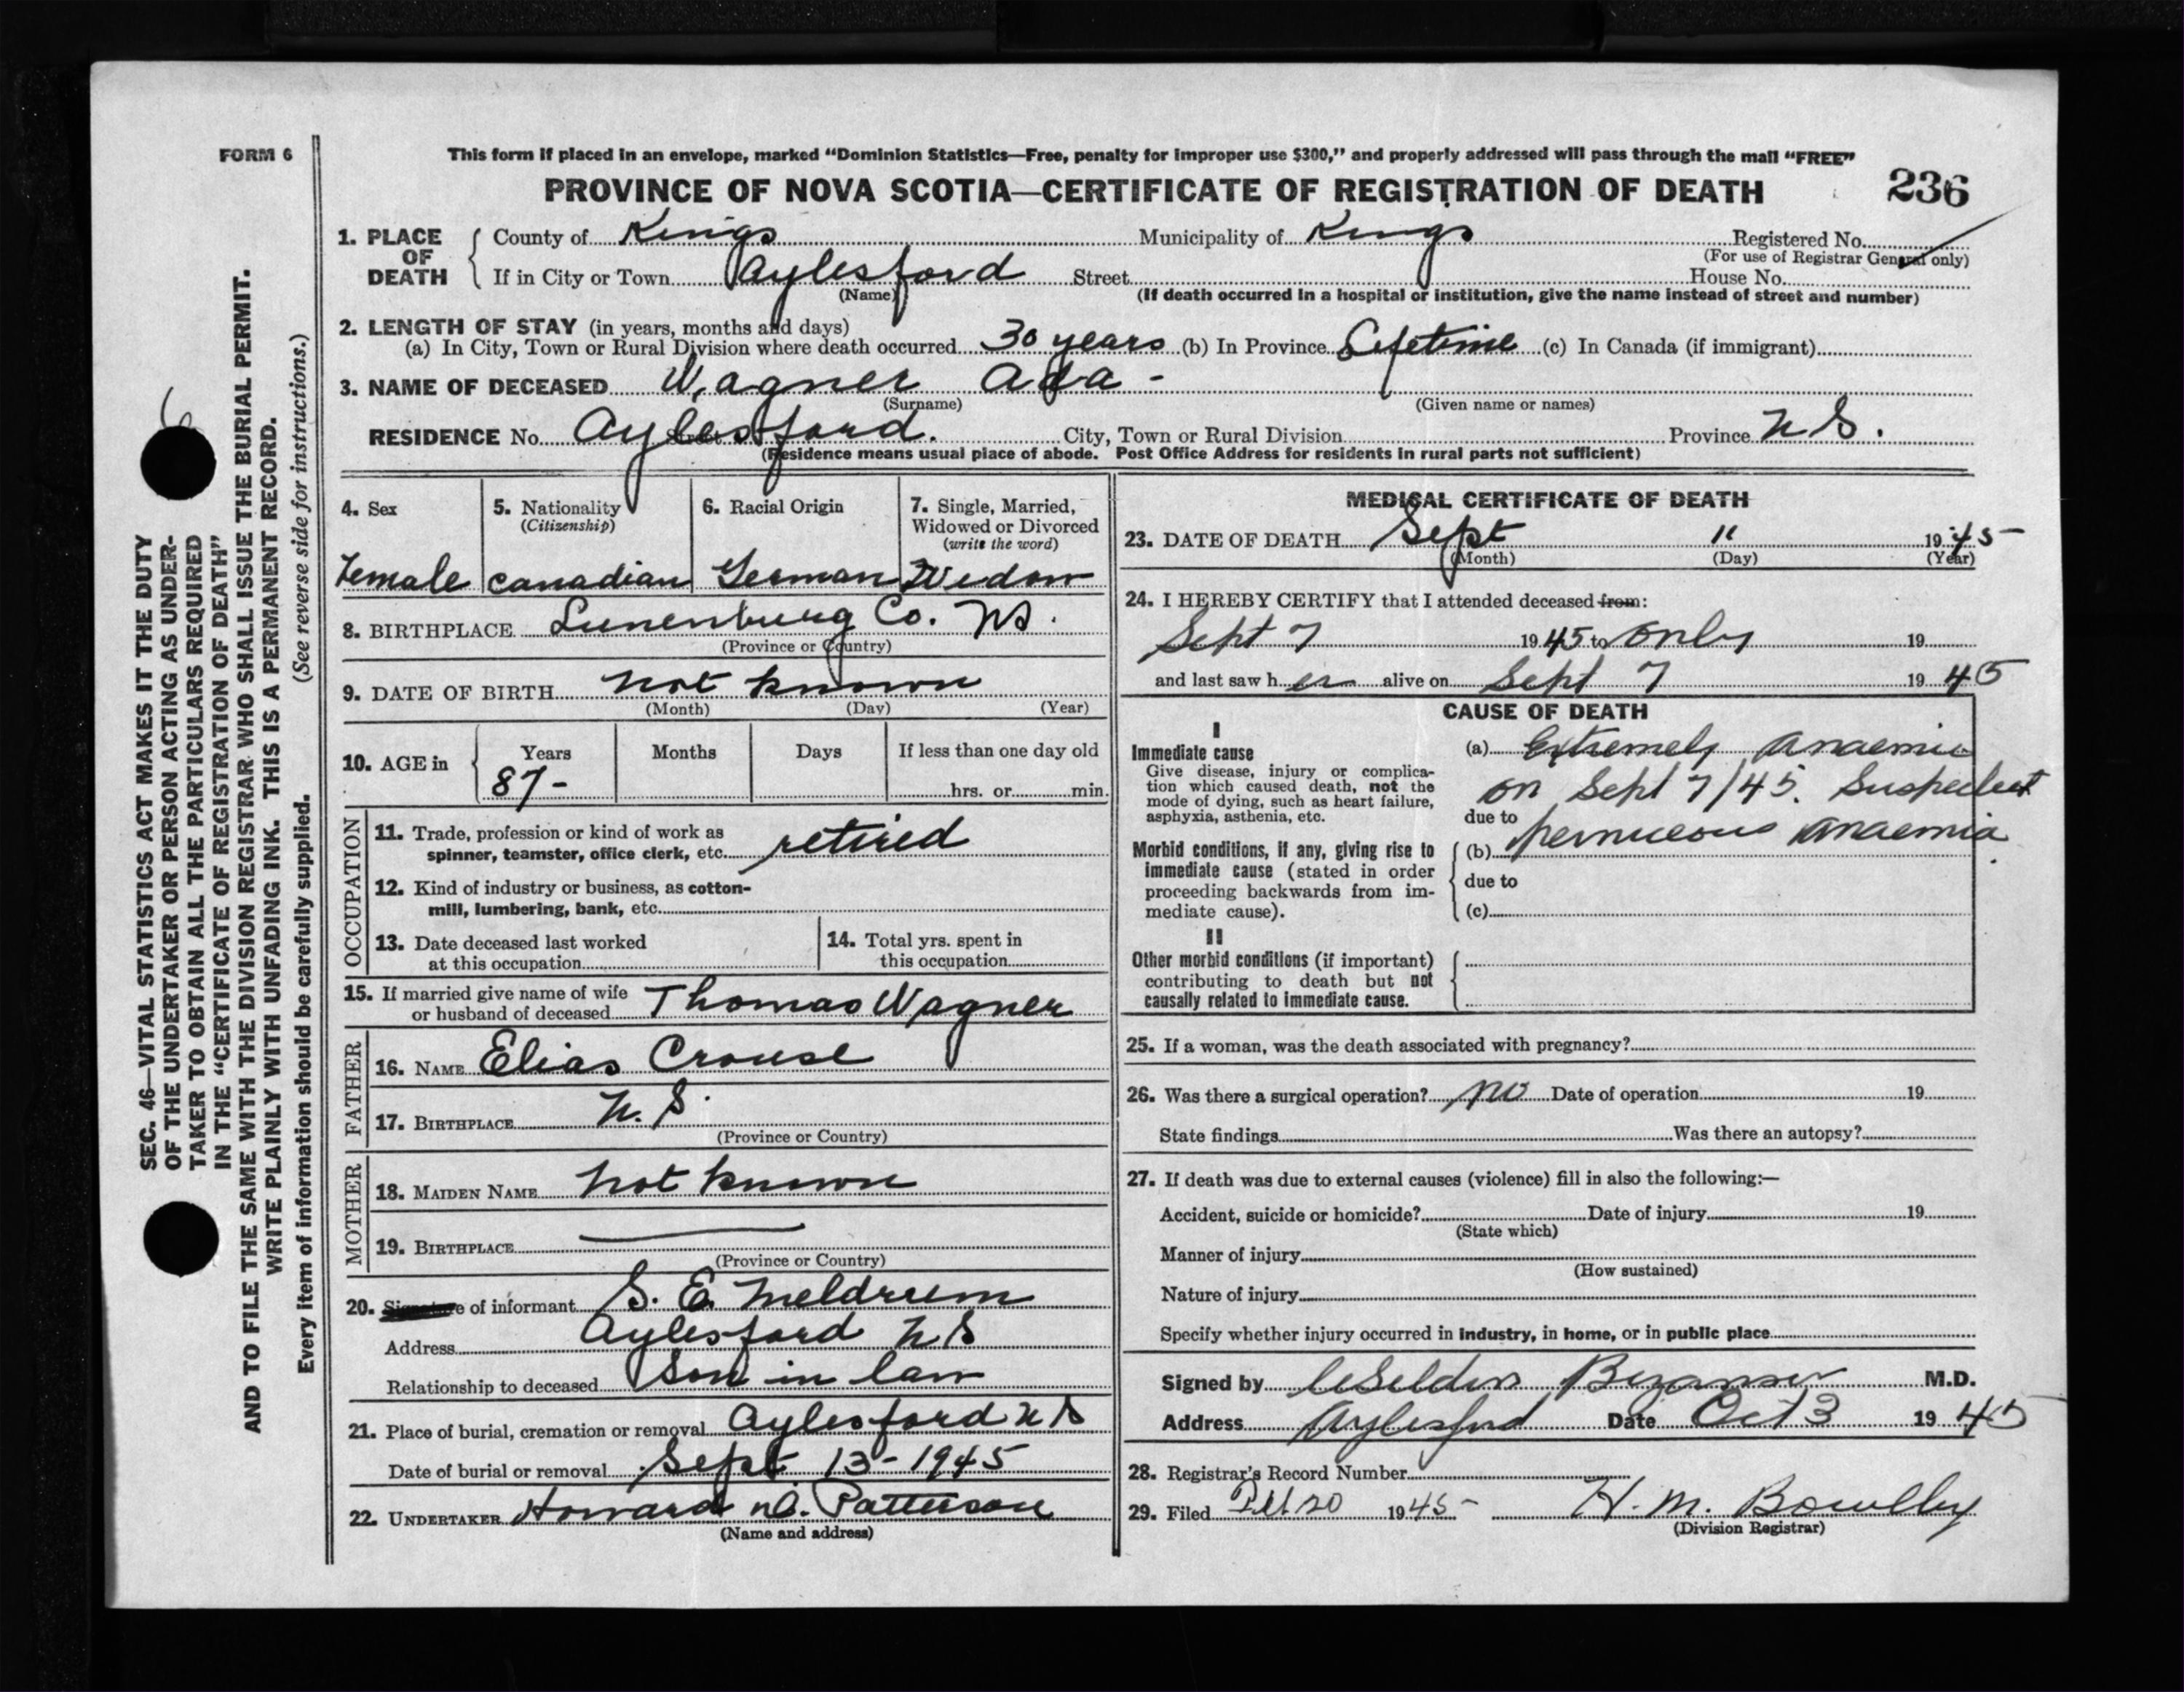 FORM 6
This form if placed in an envelope, marked “Dominion Statistics—Free, penalty for improper use $300,” and properly addressed will pass through the mail “FREE”
PROVINCE OF NOVA SCOTIA—CERTIFICATE OF REGISTRATION OF DEATH 236
1. PLACE OF DEATH
County of Kings Municipality of Kings Registered No.
(For use of Registrar General only)
If in City or Town Aylesford Street House No.
(Name) (If death occurred in a hospital or institution, give the name instead of street and number)
2. LENGTH OF STAY (in years, months and days)
(a) In City, Town or Rural Division where death occurred 30 years (b) In Province Lifetime (c) In Canada (if immigrant)
3. NAME OF DECEASED Wagner Ada -
(Surname) (Given name or names)
RESIDENCE No. Aylesford. Street City, Town or Rural Division Province N S.
(Residence means usual place of abode. Post Office Address for residents in rural parts not sufficient)
4. Sex
Female
5. Nationality
(Citizenship)
Canadian
6. Racial Origin
German
7. Single, Married,
Widowed or Divorced
(write the word)
Widow
8. BIRTHPLACE Lunenburg Co. NS.
(Province or Country)
9. DATE OF BIRTH not known
(Month) (Day) (Year)
10. AGE in
Years Months Days If less than one day old
87- hrs. or min.
OCCUPATION
11. Trade, profession or kind of work as
spinner, teamster, office clerk, etc. retired
12. Kind of industry or business, as cotton-
mill, lumbering, bank, etc.
13. Date deceased last worked
at this occupation
14. Total yrs. spent in
this occupation
15. If married give name of wife
or husband of deceased Thomas Wagner
FATHER
16. NAME Elias Crouse
17. BIRTHPLACE N. S.
(Province or Country)
MOTHER
18. MAIDEN NAME not known
19. BIRTHPLACE
(Province or Country)
20. Signature of informant S. E. Meldrum
Address Aylesford N S
Relationship to deceased Son in law
21. Place of burial, cremation or removal Aylesford N S
Date of burial or removal Sept 13-1945
22. UNDERTAKER Howard Patterson
(Name and address)
MEDICAL CERTIFICATE OF DEATH
23. DATE OF DEATH Sept 11 1945
(Month) (Day) (Year)
24. I HEREBY CERTIFY that I attended deceased from:
Sept 7 1945 to only 19
and last saw her alive on Sept 7 1945
CAUSE OF DEATH
I
Immediate cause
Give disease, injury or complica-
tion which caused death, not the
mode of dying, such as heart failure,
asphyxia, asthenia, etc.
(a) Extremely anaemic
on Sept 7/45. Suspected
due to
(b) pernicious anaemia
Morbid conditions, if any, giving rise to
immediate cause (stated in order
proceeding backwards from im-
mediate cause).
due to
(c)
II
Other morbid conditions (if important)
contributing to death but not
causally related to immediate cause.
25. If a woman, was the death associated with pregnancy?
26. Was there a surgical operation? no Date of operation 19
State findings Was there an autopsy?
27. If death was due to external causes (violence) fill in also the following:—
Accident, suicide or homicide? Date of injury 19
(State which)
Manner of injury
(How sustained)
Nature of injury
Specify whether injury occurred in industry, in home, or in public place
Signed by Bezanson M.D.
Address Aylesford Date Oct 3 1945
28. Registrar's Record Number
29. Filed 1945- H. M. Bowlby
(Division Registrar)
SEC. 46—VITAL STATISTICS ACT MAKES IT THE DUTY
OF THE UNDERTAKER OR PERSON ACTING AS UNDER-
TAKER TO OBTAIN ALL THE PARTICULARS REQUIRED
IN THE “CERTIFICATE OF REGISTRATION OF DEATH”
AND TO FILE THE SAME WITH THE DIVISION REGISTRAR WHO SHALL ISSUE THE BURIAL PERMIT.
WRITE PLAINLY WITH UNFADING INK. THIS IS A PERMANENT RECORD.
Every item of information should be carefully supplied. (See reverse side for instructions.)